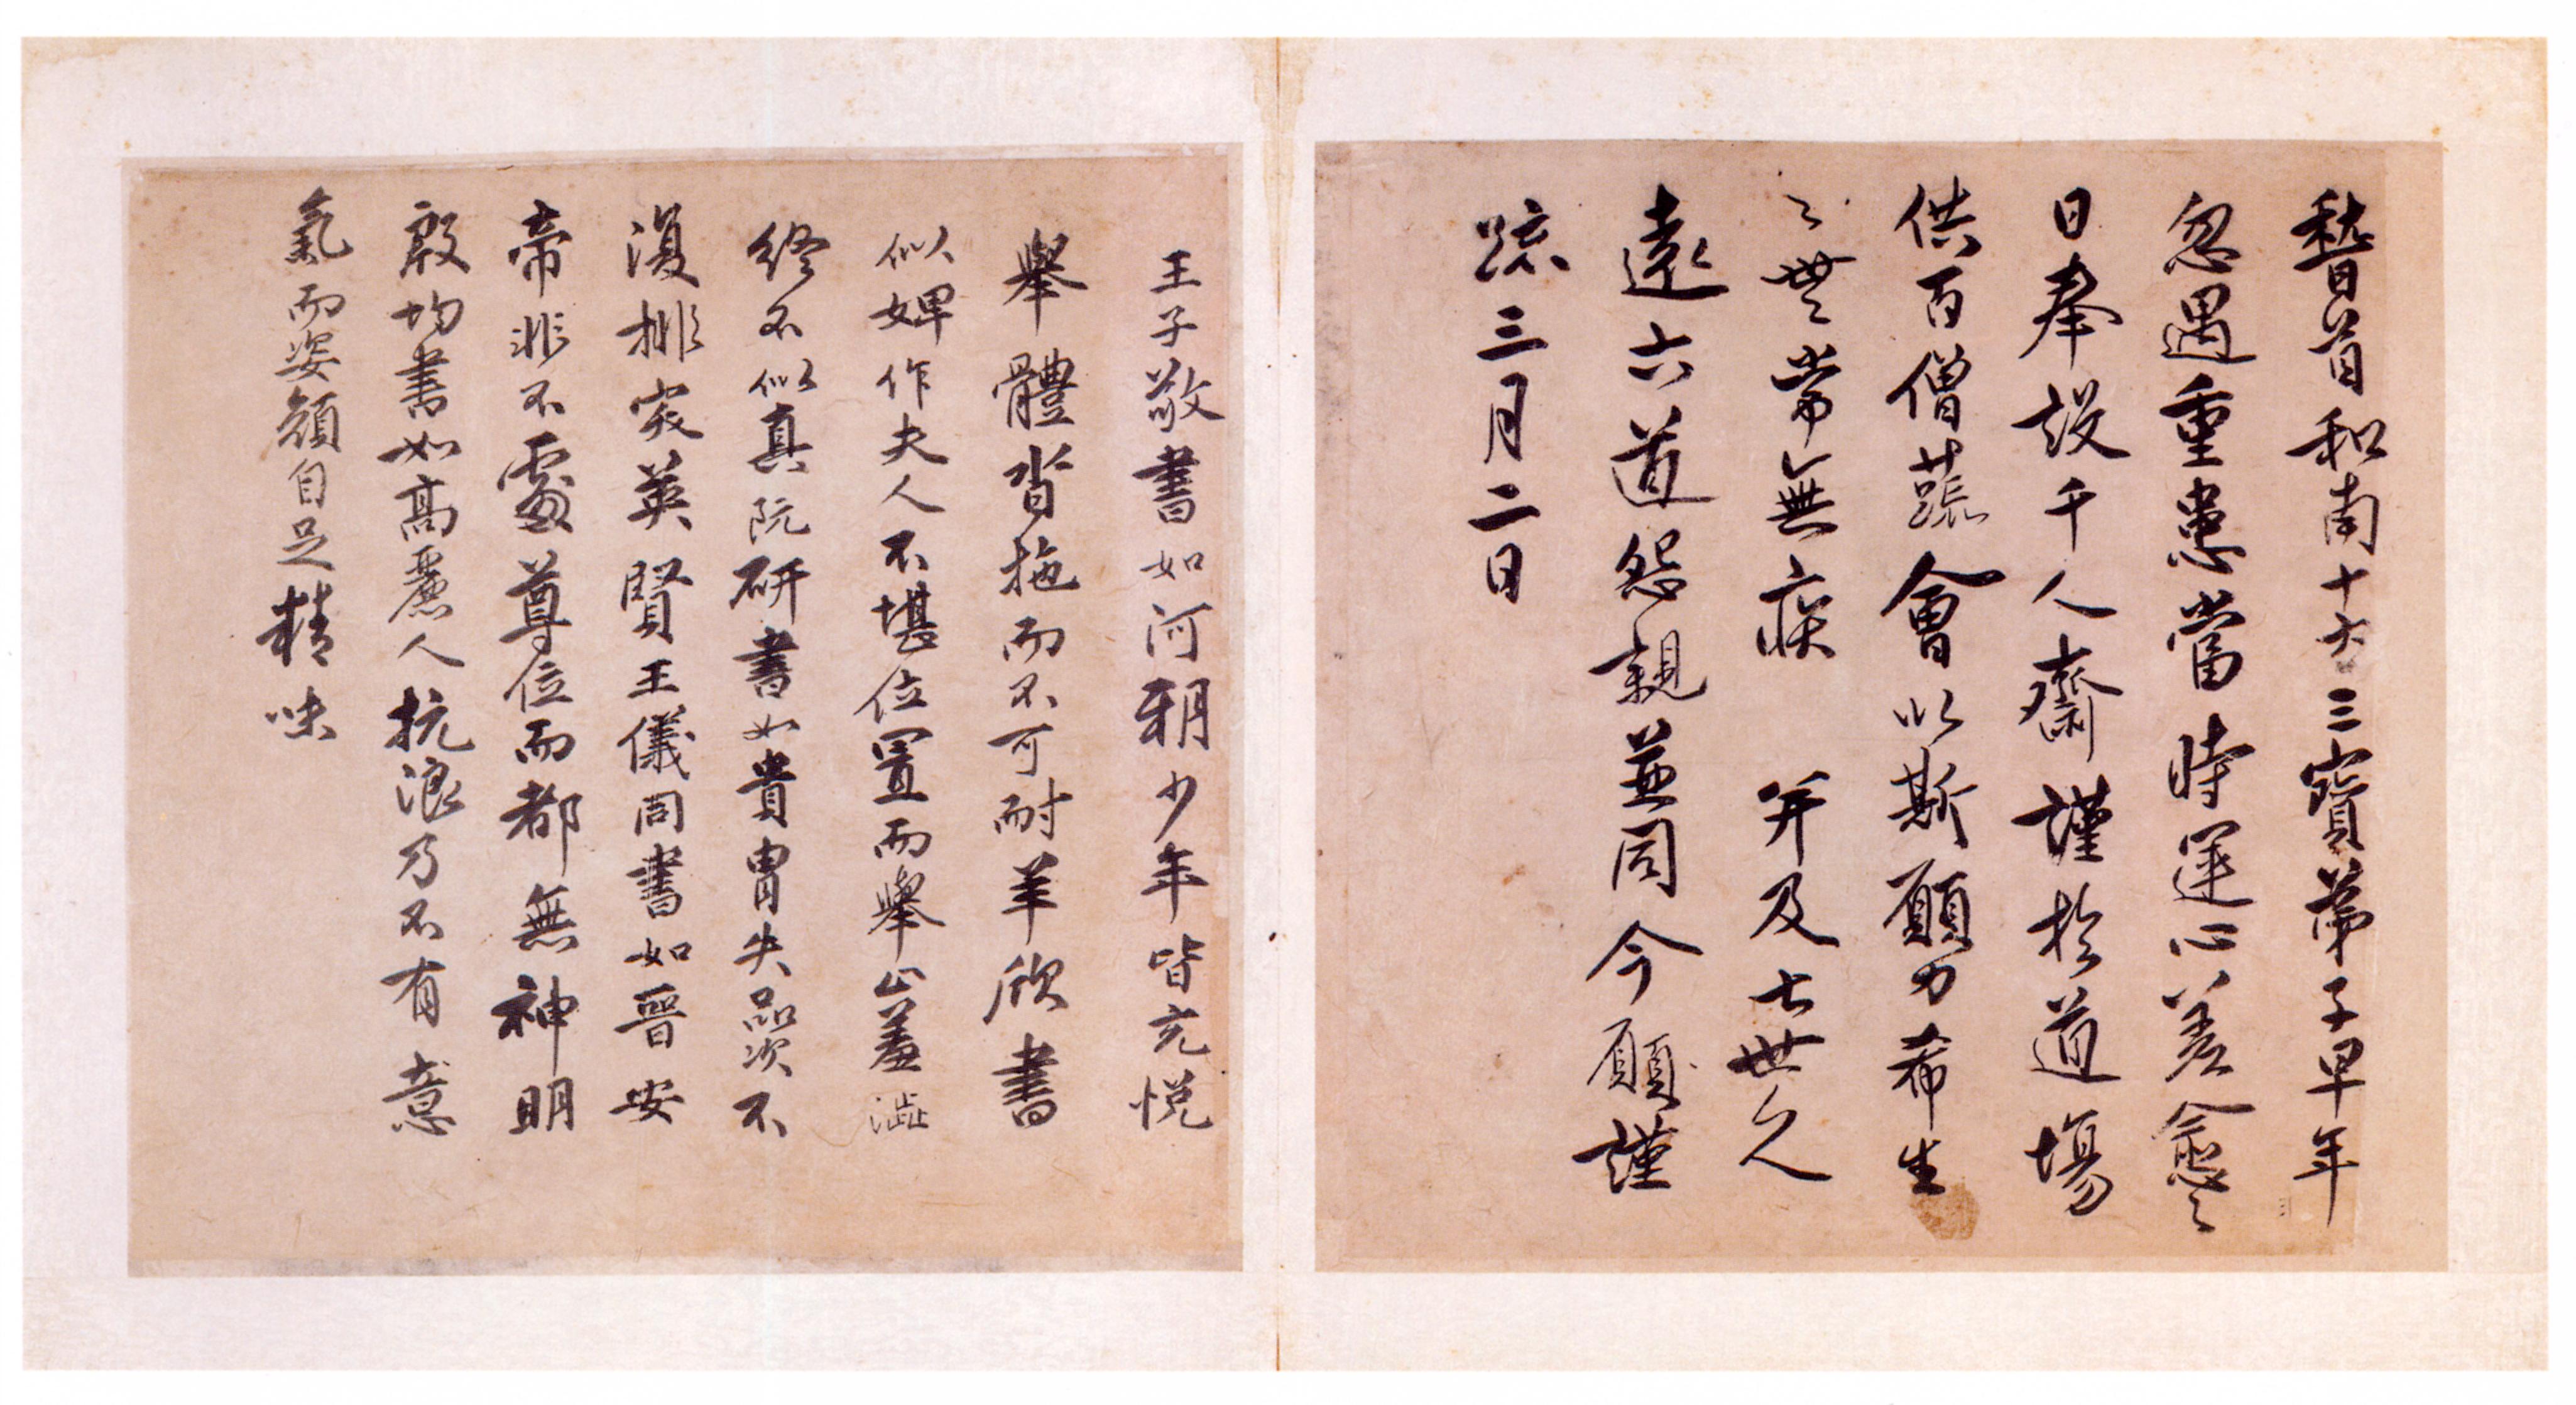 稽首和南十方三寶弟子早年
忽遇重患當時運心差愈之
日奉設千人齋謹於道場
供百僧蔬會以斯願力希生
々世々常無疾 并及七世久
遠六道怨親並同今願謹
疏三月二日
王子敬書如河朔少年皆充悅
舉體沓拖而不可耐羊欣書
似婢作夫人不堪位置而舉止羞澀
終不似真阮研書如貴胄失品次不
復排突英賢王儀同書如晉安
帝非不處尊位而都無神明
殷均書如高麗人抗浪乃不有意
氣而姿顏自足精味